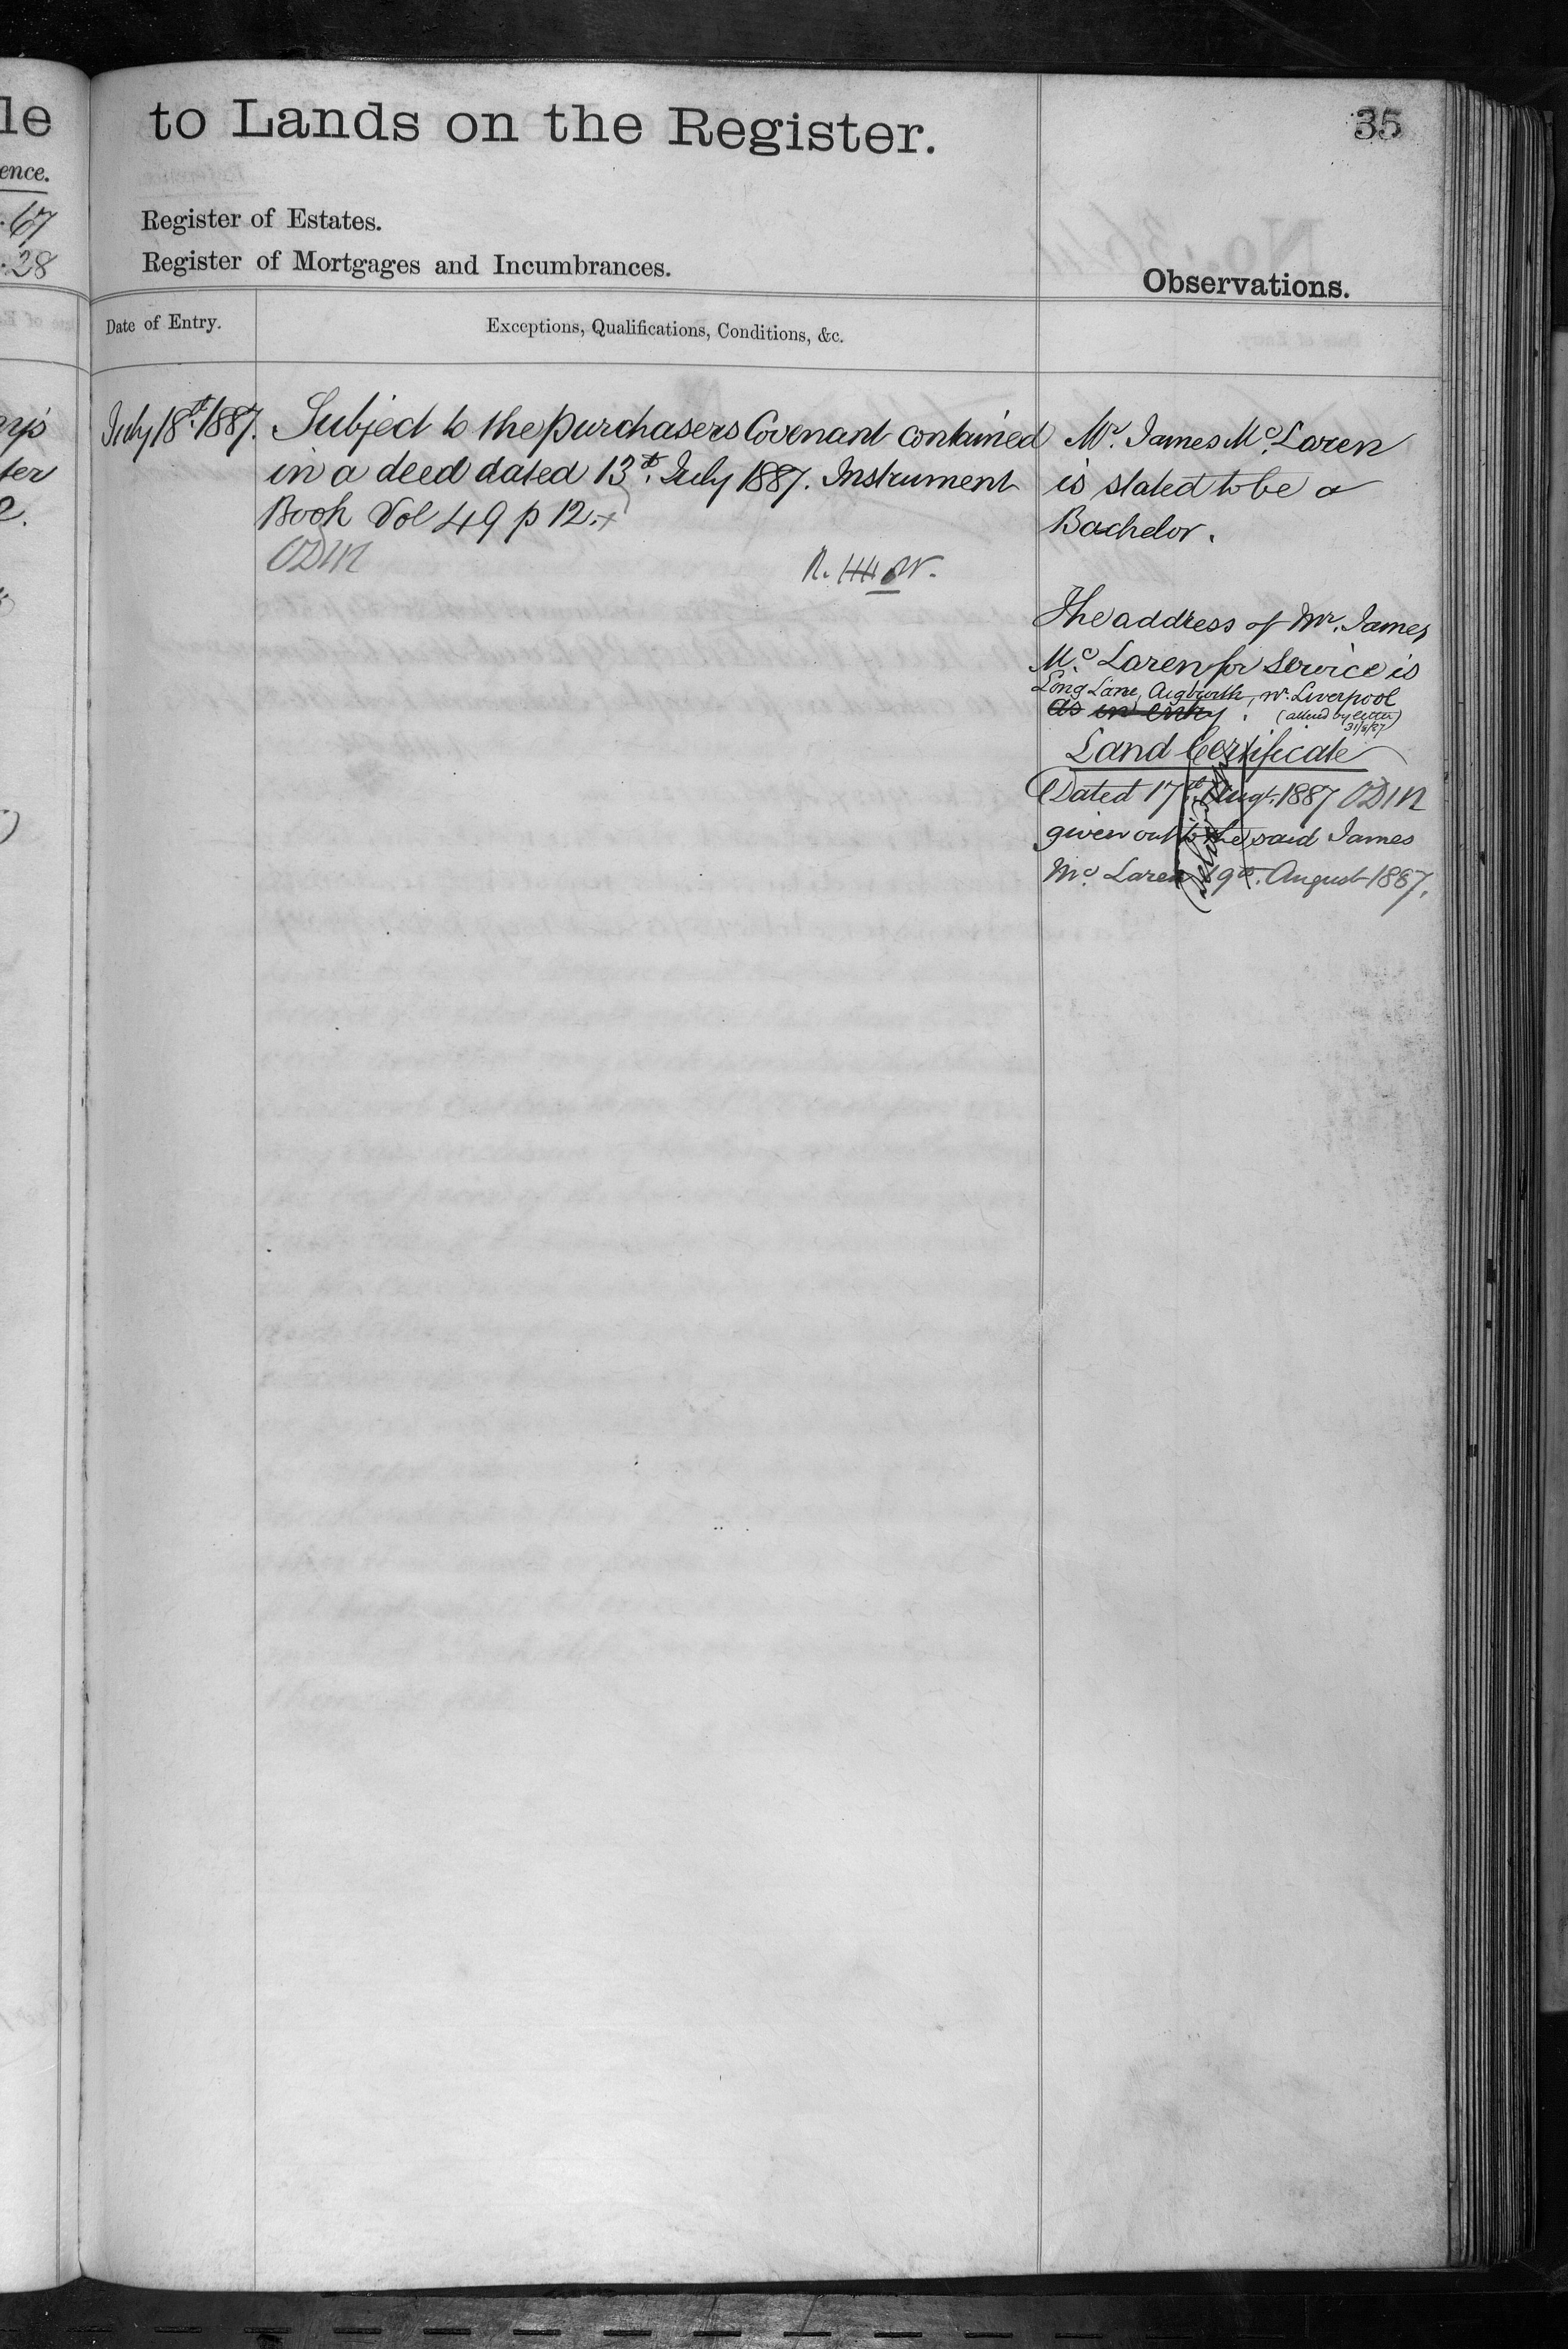 le
ence.
67
28
ter
to Lands on the Register.
35
Register of Estates.
Register of Mortgages and Incumbrances.
Observations.
Date of Entry.
Exceptions, Qualifications, Conditions, &c.
July 18th 1887.
Subject to the purchasers Covenant contained
in a deed dated 13th July 1887. Instrument
Book Vol 49 p 12.
Mr. James Mc.Laren
is stated to be a
Bachelor.
The address of Mr. James
Mc. Laren for Service is
Long Lane, Aigburth, Nr. Liverpool
as in entry. (altered by letter)
Land Certificate
Dated 17th Augt. 1887
given out to the said James
Mc. Laren 19th. August 1887.